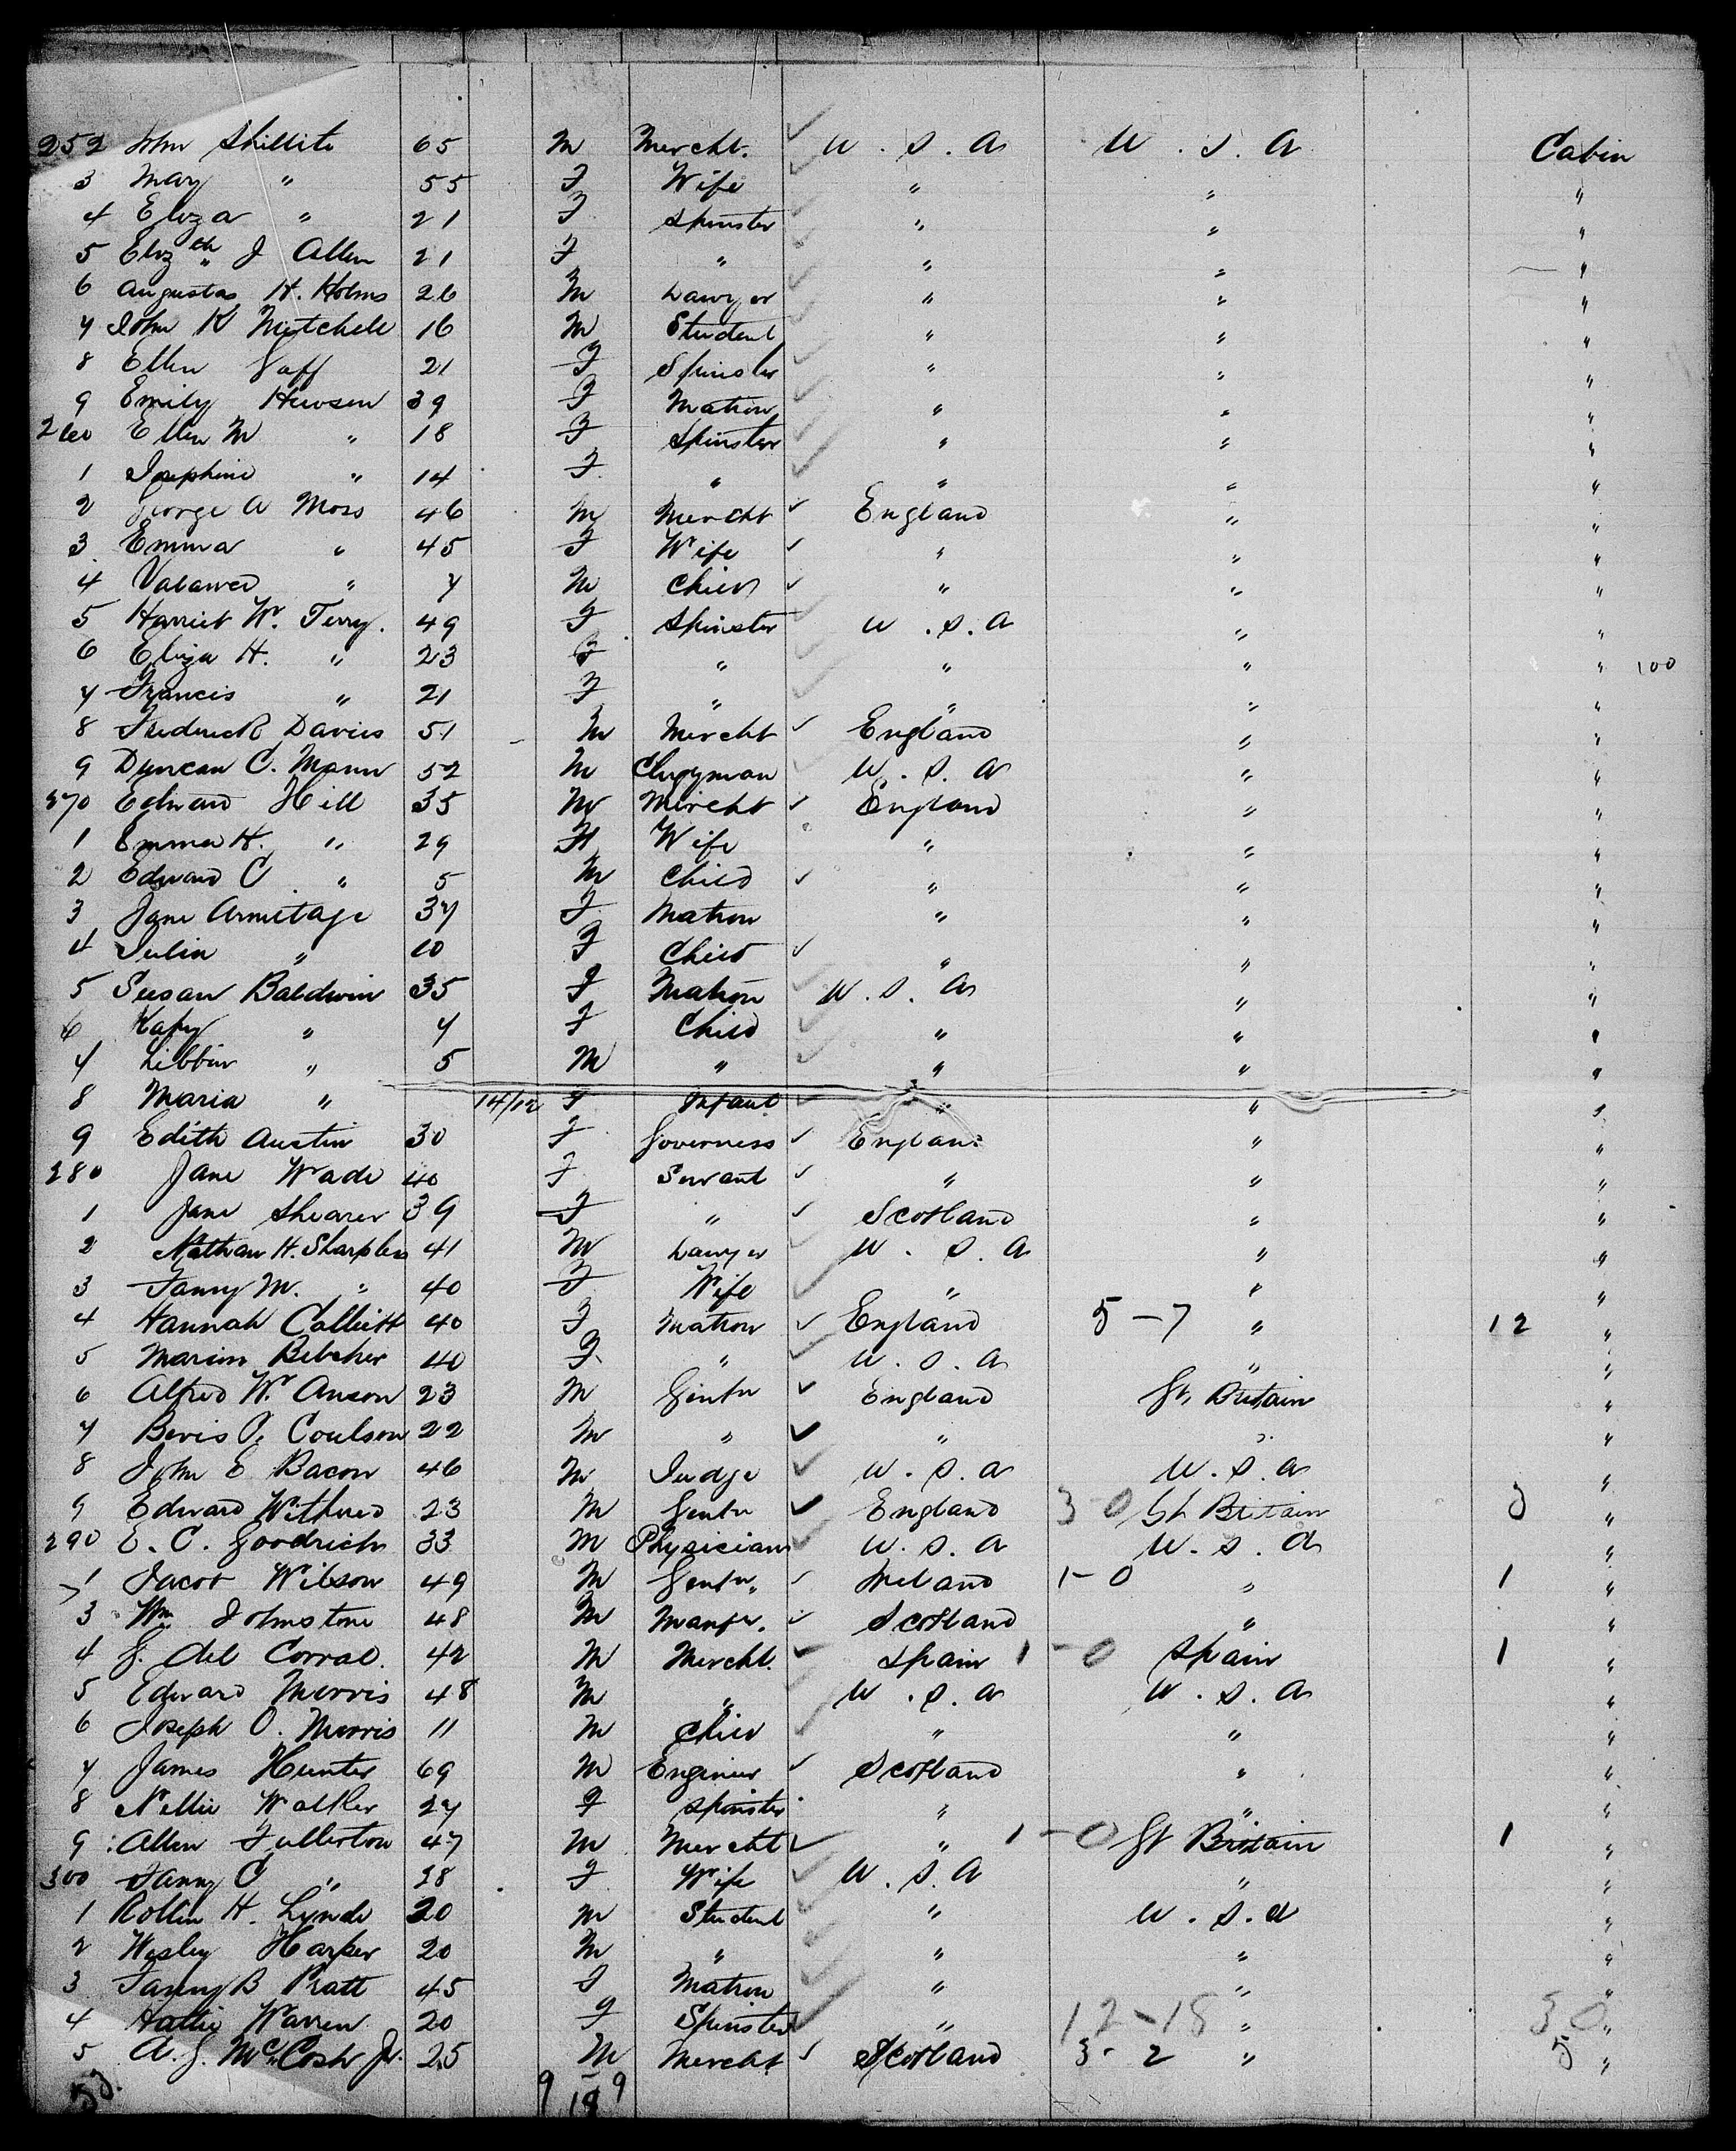 252 John Shillito 65 M Mercht. U.S.A U.S.A Cabin
3 Mary " 55 F Wife " " "
4 Eliza " 21 F Spinster " " "
5 Elizth J Allen 21 F " " " "
6 Augustas H. Holms 26 M Lawyer " " "
7 John K Mitchell 16 M Student " " "
8 Ellen Gaff 21 F Spinster " " "
9 Emily Hewson 39 F Matron " " "
260 Ellen M " 18 F Spinster " " "
1 Josephine " 14 F " " " "
2 George A Moss 46 M Mercht England " "
3 Emma " 45 F Wife " " "
4 " 7 M Child " " "
5 Harriet W. Terry. 49 F Spinster U.S.A " "
6 Eliza H. " 23 F " " " " 100
7 Francis " 21 F " " " "
8 Frederick Davies 51 M Mercht England " "
9 Duncan C. Mann 52 M Clergyman U.S.A " "
270 Edward Hill 35 M Mercht England " "
1 Emma H. " 29 F Wife " " "
2 Edward C " 5 M Child " " "
3 Jane Armitage 37 F Matron " " "
4 Julia " 10 F Child " " "
5 Susan Baldwin 35 F Matron U.S.A " "
6 " 7 F Child " " "
7 " 5 M " " " "
8 Maria " 14/12 F Infant " " "
9 Edith Austin 30 F Governess England " "
280 Jane Wade 40 F Servant " " "
1 Jane Shearer 39 F " Scotland " "
2 Nathan H. Sharpless 41 M Lawyer U.S.A " "
3 Fanny M. " 40 F Wife " " "
4 Hannah 40 F Matron England 5-7 " 12 "
5 Marion Belcher 40 F " U.S.A " "
6 Alfred W. Anson 23 M Gentn England Gt Britain "
7 Bevis P. Coulson 22 M " " " "
8 John E Bacon 46 M Judge U.S.A U.S.A "
9 Edward 23 M Gentn England 3-0 Gt Britain 3 "
290 E. C. Goodrich 33 M Physician U.S.A U.S.A "
1 Jacob Wilson 49 M Gentn Ireland 1-0 " 1 "
3 Wm Johnstone 48 M Manfr. Scotland " "
4 G. Del Corral. 42 M Mercht. Spain 1-0 Spain 1 "
5 Edward Morris 48 M " U.S.A U.S.A "
6 Joseph O. Morris 11 M Child " " "
7 James Hunter 69 M Engineer Scotland " "
8 Nellie Walker 27 F Spinster " " "
9 Allen Fullerton 47 M Mercht " 1-0 Gt Britain 1 "
300 Fanny C " 38 F Wife U.S.A " "
1 Rollin H. Lynde 20 M Student " U.S.A "
2 Wesley Harper 20 M " " " "
3 Fanny B Pratt 45 F Matron " " "
4 Hattie Warren 20 F Spinster " 12-18 " 30 "
5 A. J. McCosh Jr. 25 M Mercht Scotland 3-2 " 5 "
53.